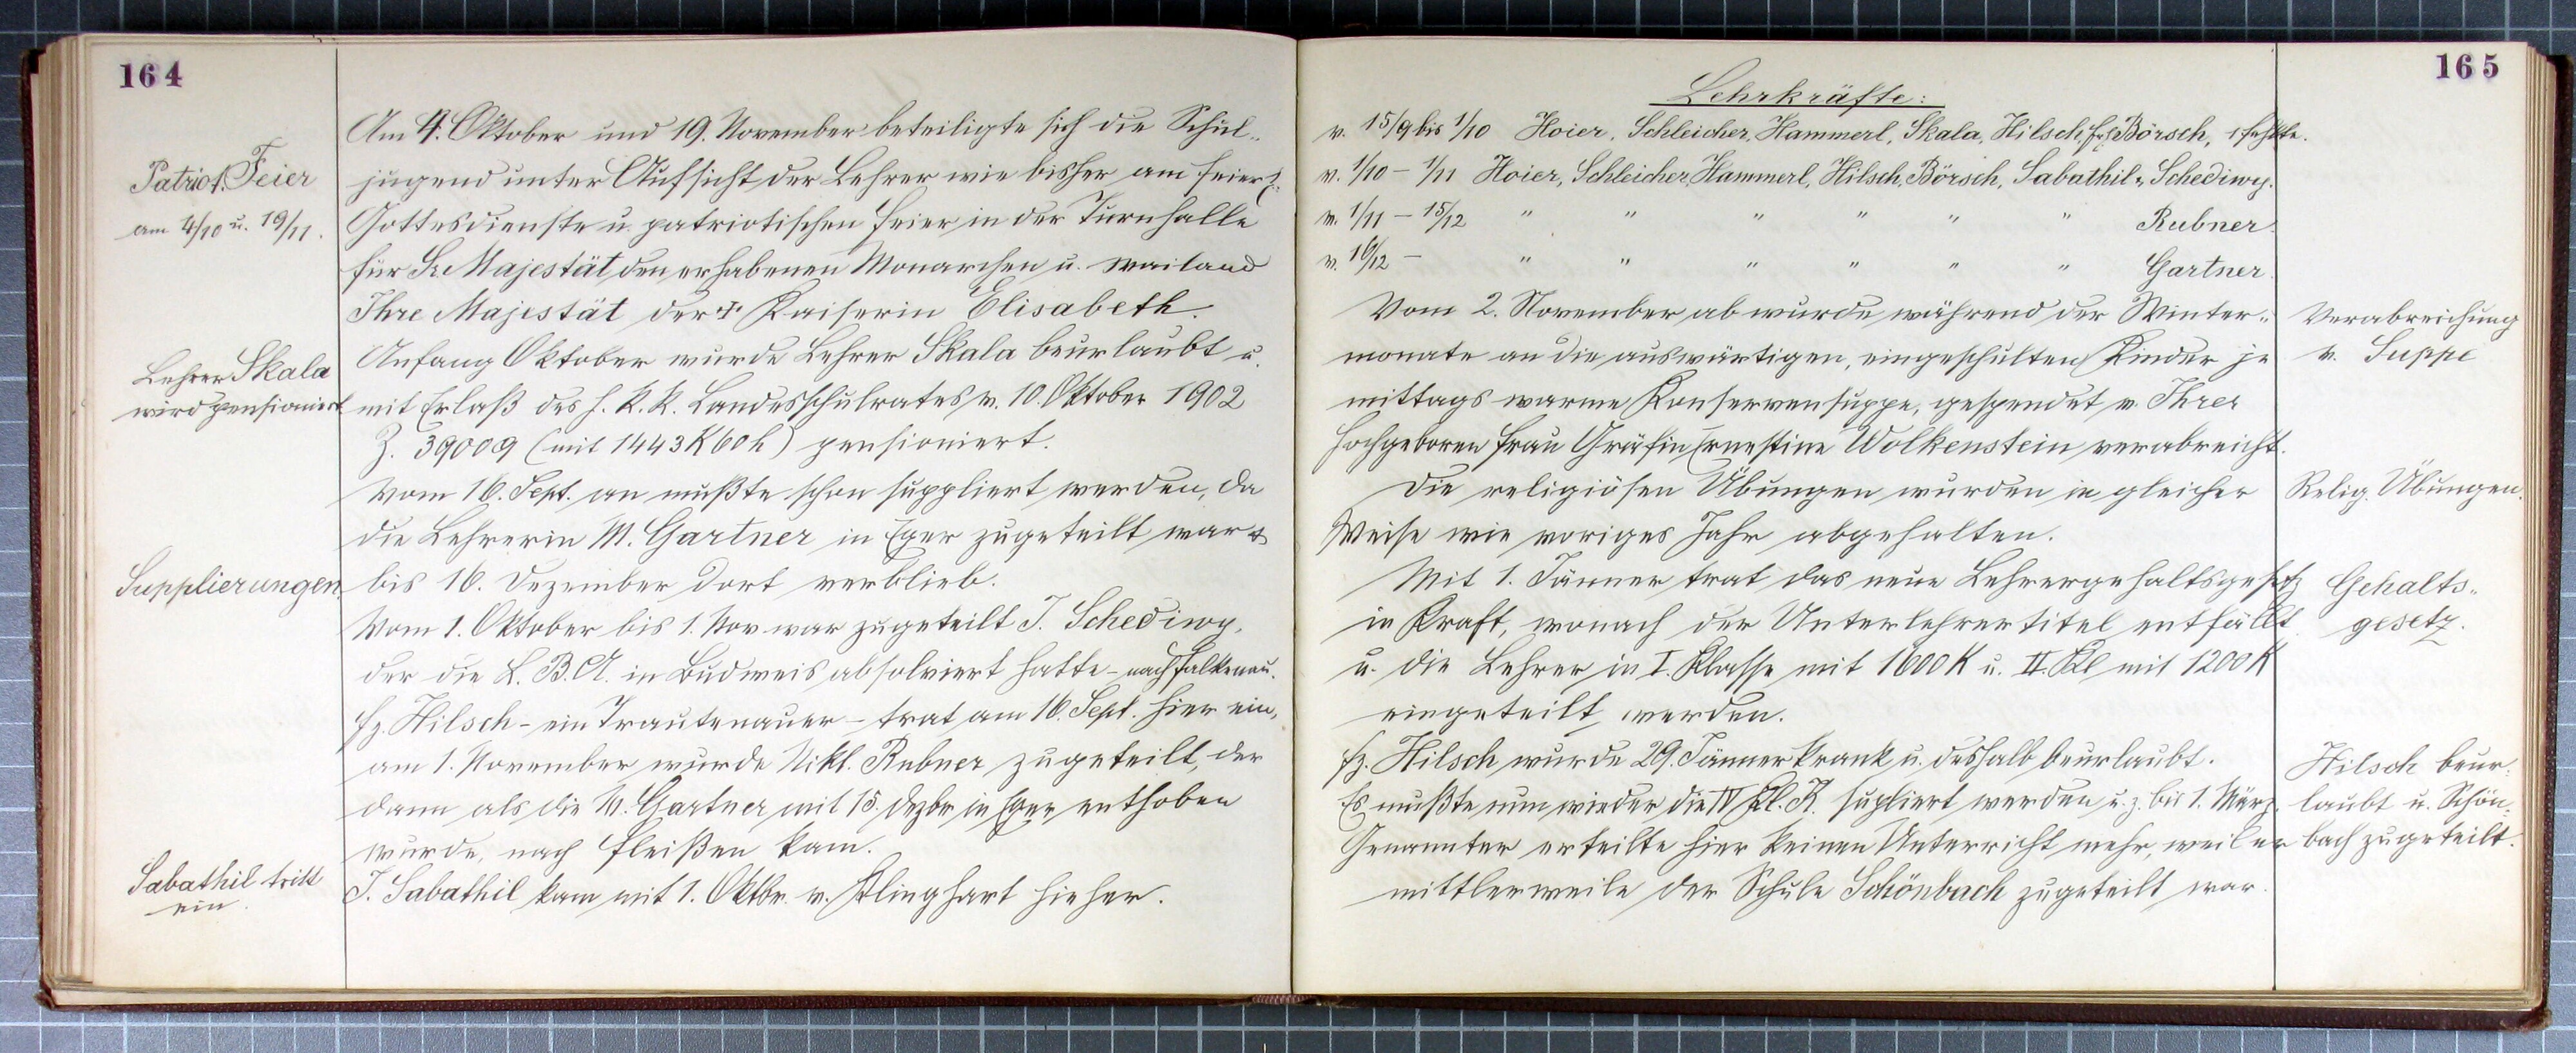 164
Am 4. Oktober und 19. November beteiligte sich die Schul-
Patriot. Feier
am 4/10 u. 19/11.
jugend unter Aufsicht der Lehrer wie bisher am feierl.
Gottesdienste u. patriotischen Feier in der Turnhalle
für Sr. Majestät den erhabenen Monarchen u. weiland
Ihre Majestät der † Kaiserin Elisabeth.
Lehrer Skala
wird pensioniert
Anfang Oktober wurde Lehrer Skala beurlaubt u.
mit Erlaß des h. k. k. Landesschulrates v. 10. Oktober 1902
Z. 39009 (mit 1443 K 60 h) pensioniert.
Vom 16. Sept. an mußte schon suppliert werden, da
die Lehrerin M. Gartner in Eger zugeteilt war u.
Supplierungen.
bis 16. Dezember dort verblieb.
Vom 1. Oktober bis 1. Nov war zugeteilt J. Schediwy,
der die L. B. A. in Budweis absolviert hatte - nach Falkenau.
Fz. Hilsch - ein Trautenauer - trat am 16. Sept. hier ein,
am 1. November wurde Nikl. Rubner zugeteilt, der
dann als die M. Gartner mit 15. Dezbr in Eger enthoben
wurde, nach Fleißen kam.
Sabathil tritt
ein.
J. Sabathil kam mit 1. Oktbr. v. Klinghart hieher.
165
Lehrkräfte:
v. 15/9 bis 1/10 Hoier, Schleicher, Hammerl, Skala, Hilsch, Börsch, 1 fehlte.
v. 1/10 - 1/11 Hoier, Schleicher, Hammerl, Hilsch, Börsch, Sabathil, Schediwy.
v. 1/11 - 15/12 " " " " " " Rubner.
v. 16/12 - " " " " " " Gartner.
Vom 2. November ab wurde während der Winter-
monate an die auswärtigen, eingeschulten Kinder je
mittags warme Konservensuppe, gespendet v. Ihrer
Hochgeboren Frau Gräfin Ernestine Wolkenstein verabreicht.
Verabreichung
v. Suppe
Die religiösen Übungen wurden in gleicher
Weise wie voriges Jahr abgehalten.
Relig. Übungen.
Mit 1. Jänner trat das neue Lehrergehaltsgesetz
in Kraft, wonach der Unterlehrertitel entfällt
u. die Lehrer in I. Klasse mit 1600 K u. II. Kl mit 1200 K
eingeteilt werden.
Gehalts-
gesetz.
Fz. Hilsch wurde 29. Jänner krank u. deshalb beurlaubt.
Es mußte nun wieder die IV Kl. K. supliert werden u. z. bis 1. März.
Genannter erteilte hier keinen Unterricht mehr, weil er
mittlerweile der Schule Schönbach zugeteilt war.
Hilsch beur-
laubt u. Schön-
bach zugeteilt.